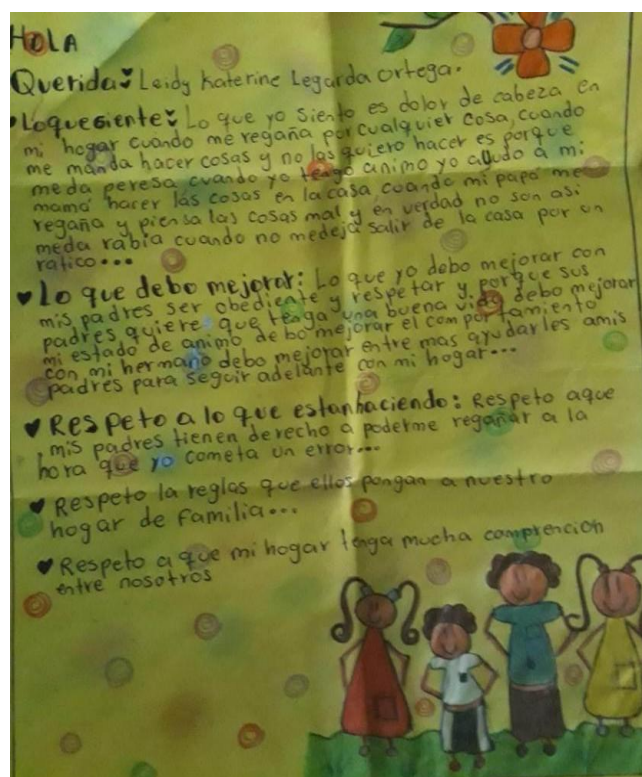 HOLA
Querida: Leidy Katerine Legarda Ortega.
Loquesiente: Lo que yo siento es dolor de cabeza en
mi hogar cuando me regaña por cualquier cosa, cuando
me manda hacer cosas y no las quiero hacer es porque
meda peresa cuando yo tengo animo yo ayudo a mi
mamá hacer las cosas en la casa cuando mi papá me
regaña y piensa las cosas mal y en verdad no son asi
meda rabia cuando no medeja salir de la casa por un
ratico...
Lo que debo mejorar: Lo que yo debo mejorar con
mis padres ser obediente y respetar y porque sus
padres quiere que tenga una buena vida debo mejorar
mi estado de animo debo mejorar el comportamiento
con mi hermano debo mejorar entre mas ayudarles amis
padres para seguir adelante con mi hogar...
Respeto a lo que estanhaciendo: Respeto aque
mis padres tienen derecho a poderme regañar a la
hora que yo cometa un error...
Respeto la reglas que ellos pongan a nuestro
hogar de familia...
Respeto a que mi hogar tenga mucha comprencion
entre nosotros